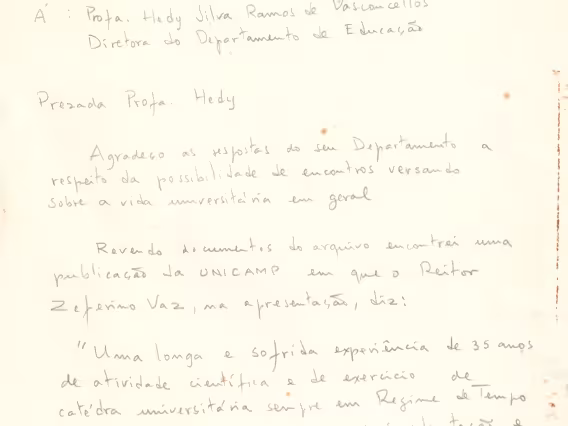 À : Profa. Hedy Silva Ramos de Vasconcellos
Diretora do Departamento de Educação
Prezada Profa. Hedy
Agradeço as respostas do seu Departamento a
respeito da possibilidade de encontros versando
sobre a vida universitária em geral
Revendo documentos do arquivo encontrei uma
publicação da UNICAMP em que o Reitor
Zeferino Vaz, na apresentação, diz:
"Uma longa e sofrida experiência de 35 anos
de atividade científica e de exercício de
catédra universitária sempre em Regime de Tempo